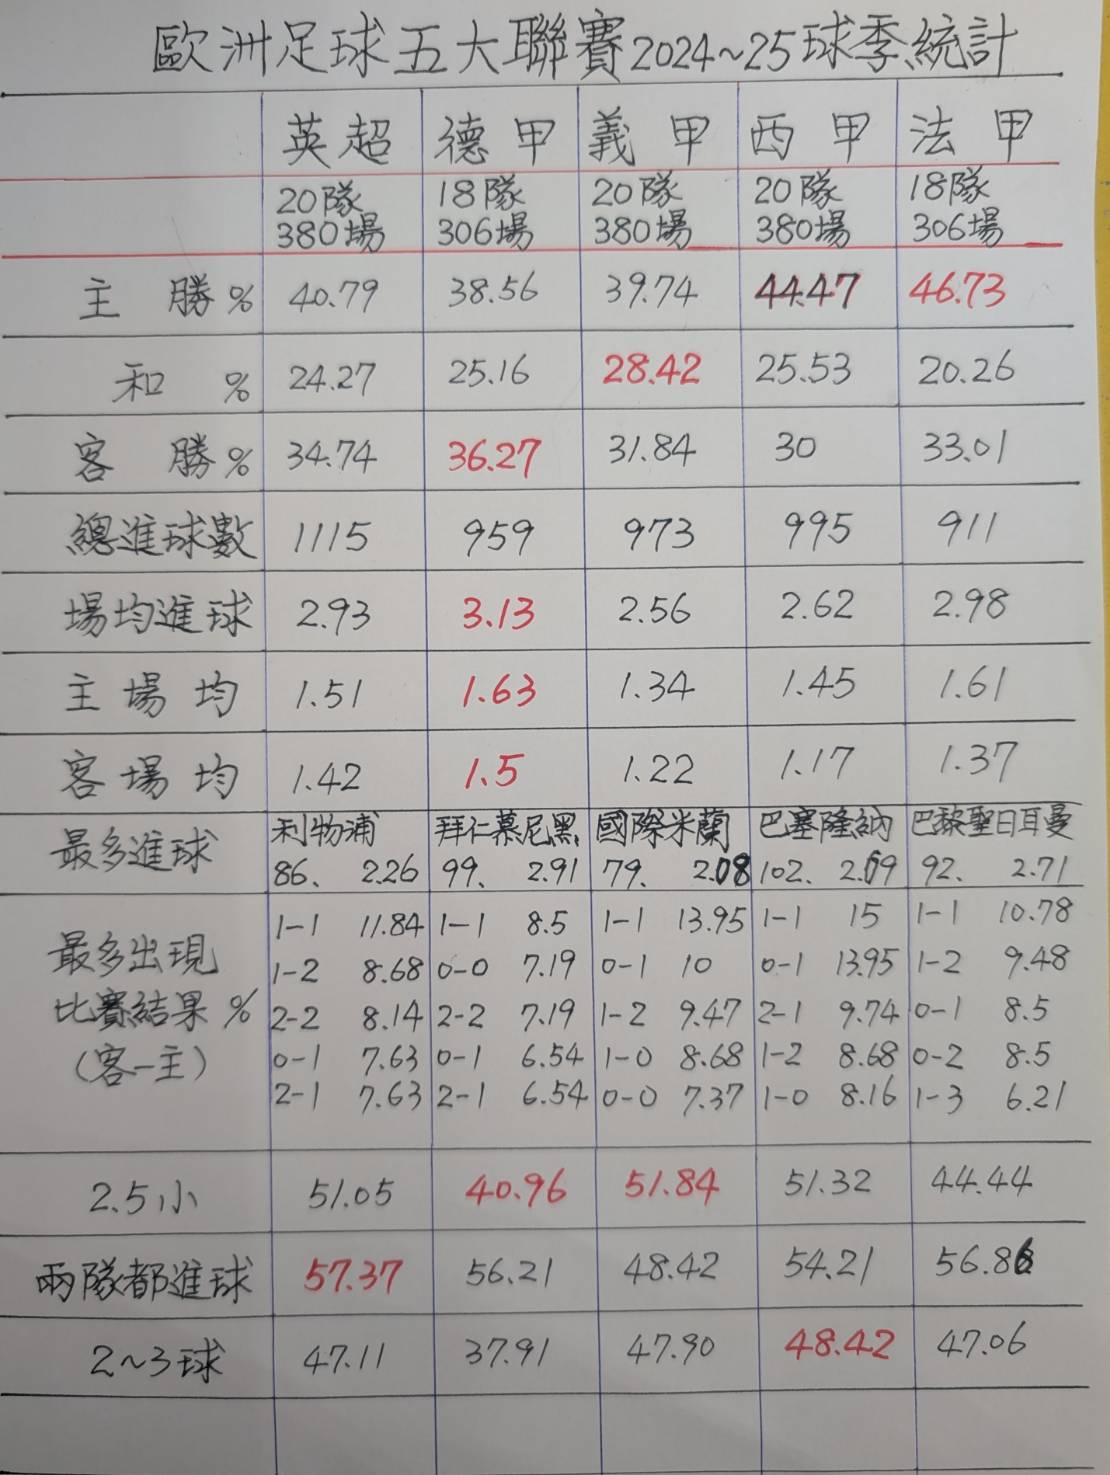 歐洲足球五大聯賽2024~25球季統計
英超 德甲 義甲 西甲 法甲
20隊 18隊 20隊 20隊 18隊
380場 306場 380場 380場 306場
主勝% 40.79 38.56 39.74 44.47 46.73
和% 24.27 25.16 28.42 25.53 20.26
客勝% 34.74 36.27 31.84 30 33.01
總進球數 1115 959 973 995 911
場均進球 2.93 3.13 2.56 2.62 2.98
主場均 1.51 1.63 1.34 1.45 1.61
客場均 1.42 1.5 1.22 1.17 1.37
最多進球 利物浦 拜仁慕尼黑 國際米蘭 巴塞隆納 巴黎聖日耳曼
86、 2.26 99、 2.91 79、 2.08 102、 92、 2.71
最多出現比賽結果%(客-主)
1-1 11.84 1-1 8.5 1-1 13.95 1-1 15 1-1 10.78
1-2 8.68 0-0 7.19 0-1 10 0-1 13.95 1-2 9.48
2-2 8.14 2-2 7.19 1-2 9.47 2-1 9.74 0-1 8.5
0-1 7.63 0-1 6.54 1-0 8.68 1-2 8.68 0-2 8.5
2-1 7.63 2-1 6.54 0-0 7.37 1-0 8.16 1-3 6.21
2.5小 51.05 40.96 51.84 51.32 44.44
兩隊都進球 57.37 56.21 48.42 54.21 56.86
2~3球 47.11 37.91 47.90 48.42 47.06